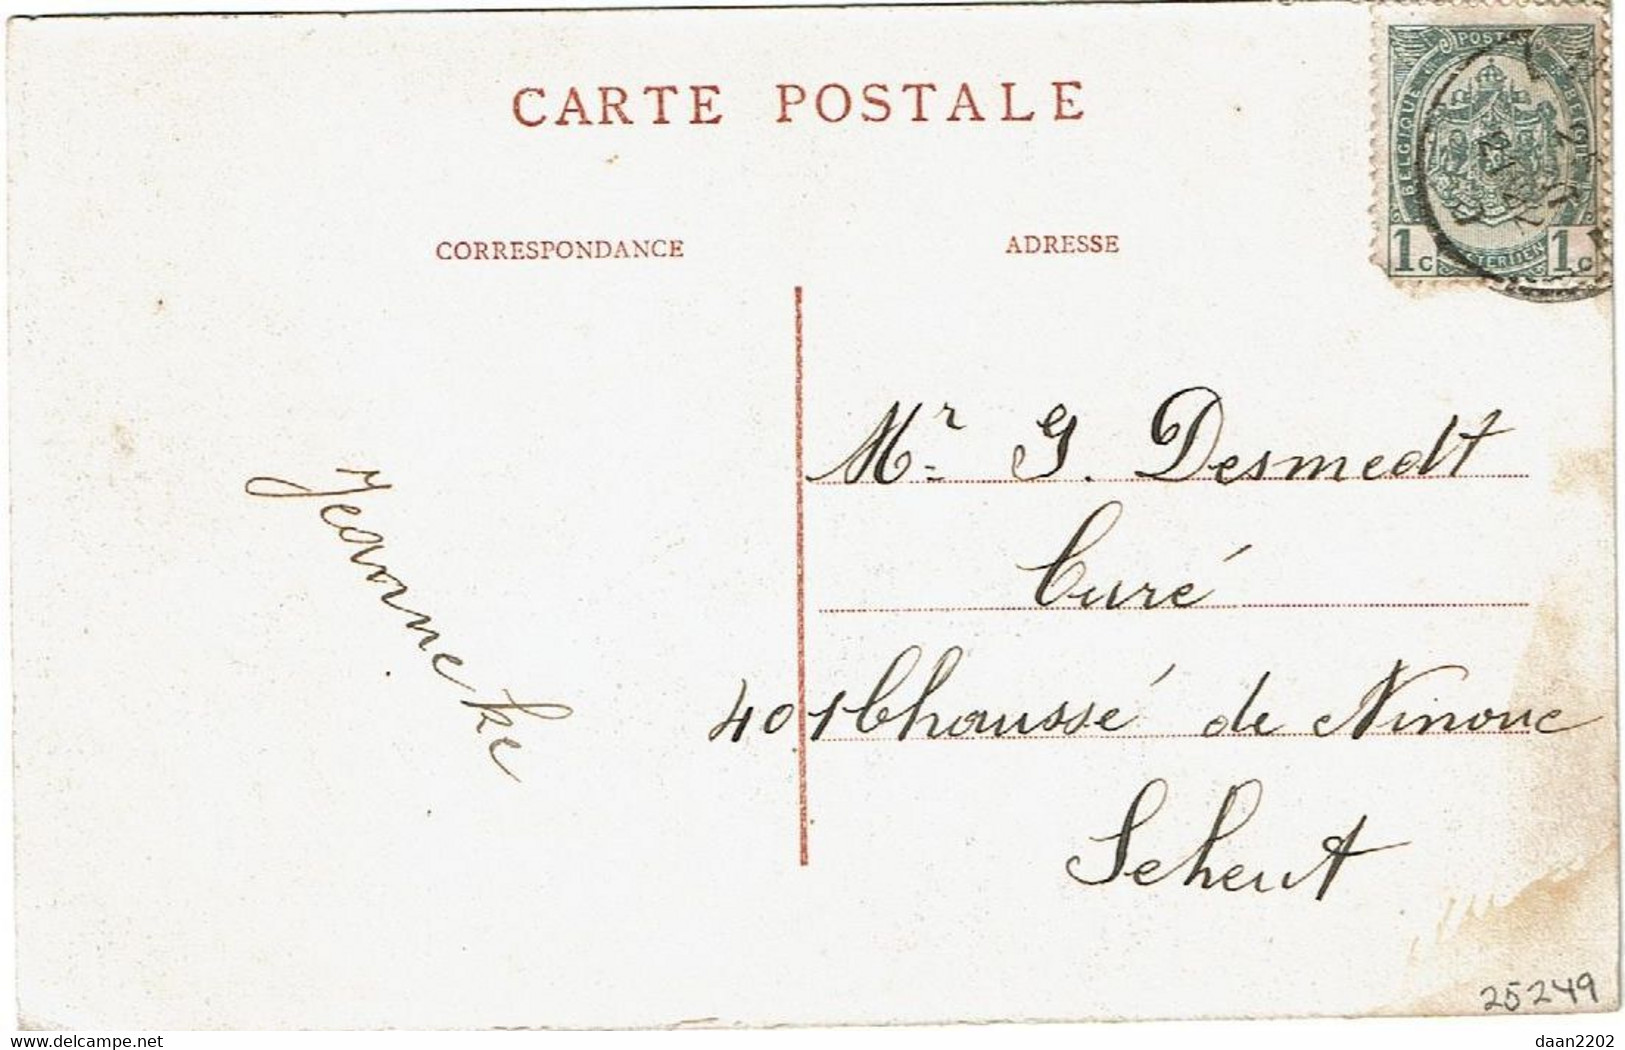 CARTE POSTALE
CORRESPONDANCE
ADRESSE
POSTES
BELGIQUE
1c 1c
Jeanneke
Mr G. Desmedt
Curé
401 Chaussé de Ninove
Scheut
25249
delcampe.net
daan2202